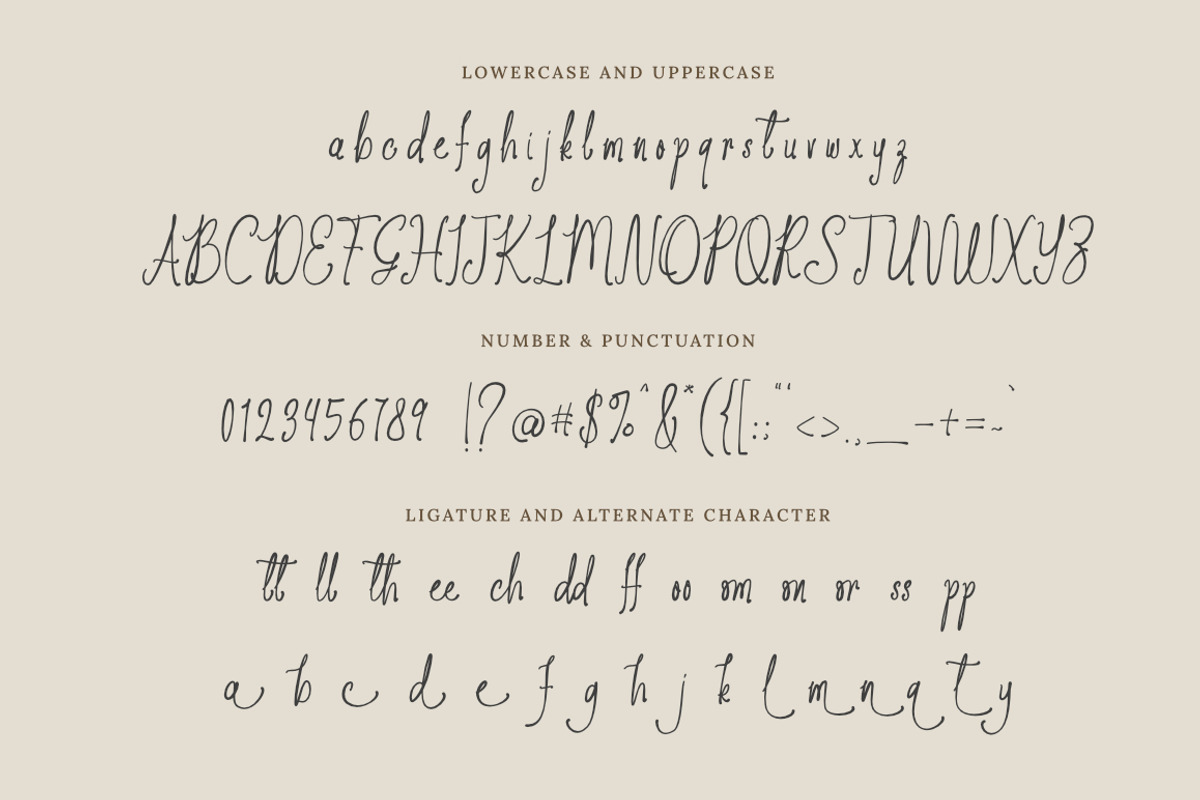 LOWERCASE AND UPPERCASE
a b c d e f g h i j k l m n o p q r s t u v w x y z
A B C D E F G H I J K L M N O P Q R S T U V W X Y Z
NUMBER & PUNCTUATION
0 1 2 3 4 5 6 7 8 9 ! ? @ # $ % ^ & * ( { [ : ; " ' < > . , _ - + = ~ `
LIGATURE AND ALTERNATE CHARACTER
tt ll th ee ch dd ff oo om on or ss pp
a b c d e f g h j k l m n q t y